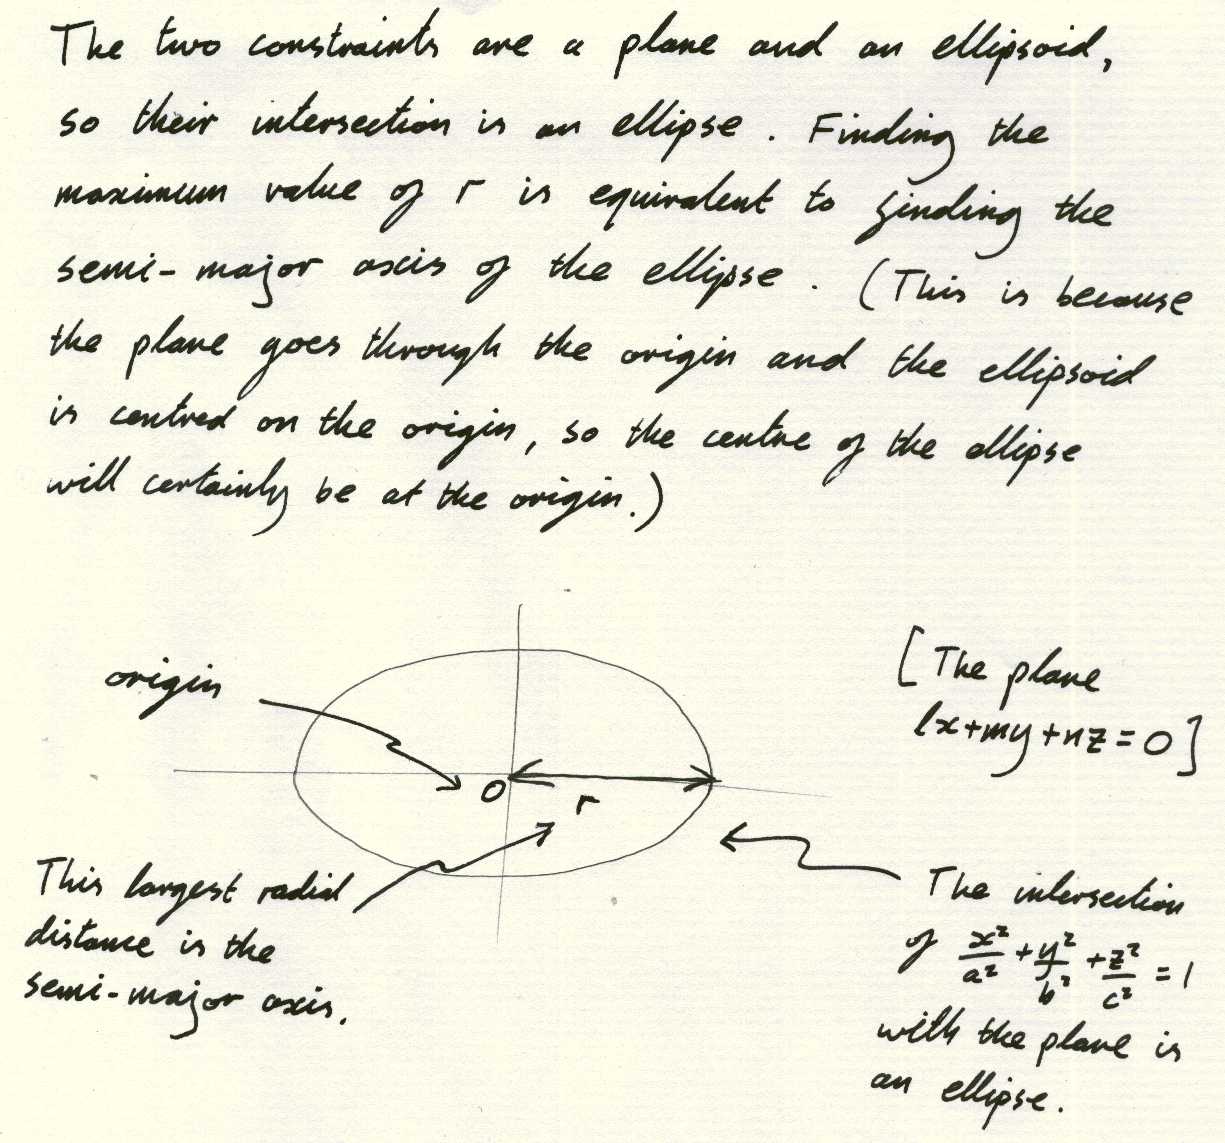 The two constraints are a plane and an ellipsoid,
so their intersection is an ellipse. Finding the
maximum value of r is equivalent to finding the
semi-major axis of the ellipse. (This is because
the plane goes through the origin and the ellipsoid
is centred on the origin, so the centre of the ellipse
will certainly be at the origin.)
origin
[The plane
lx+my+nz=0]
O
r
This largest radial
distance is the
semi-major axis.
The intersection
of x²/a² + y²/b² + z²/c² = 1
with the plane is
an ellipse.